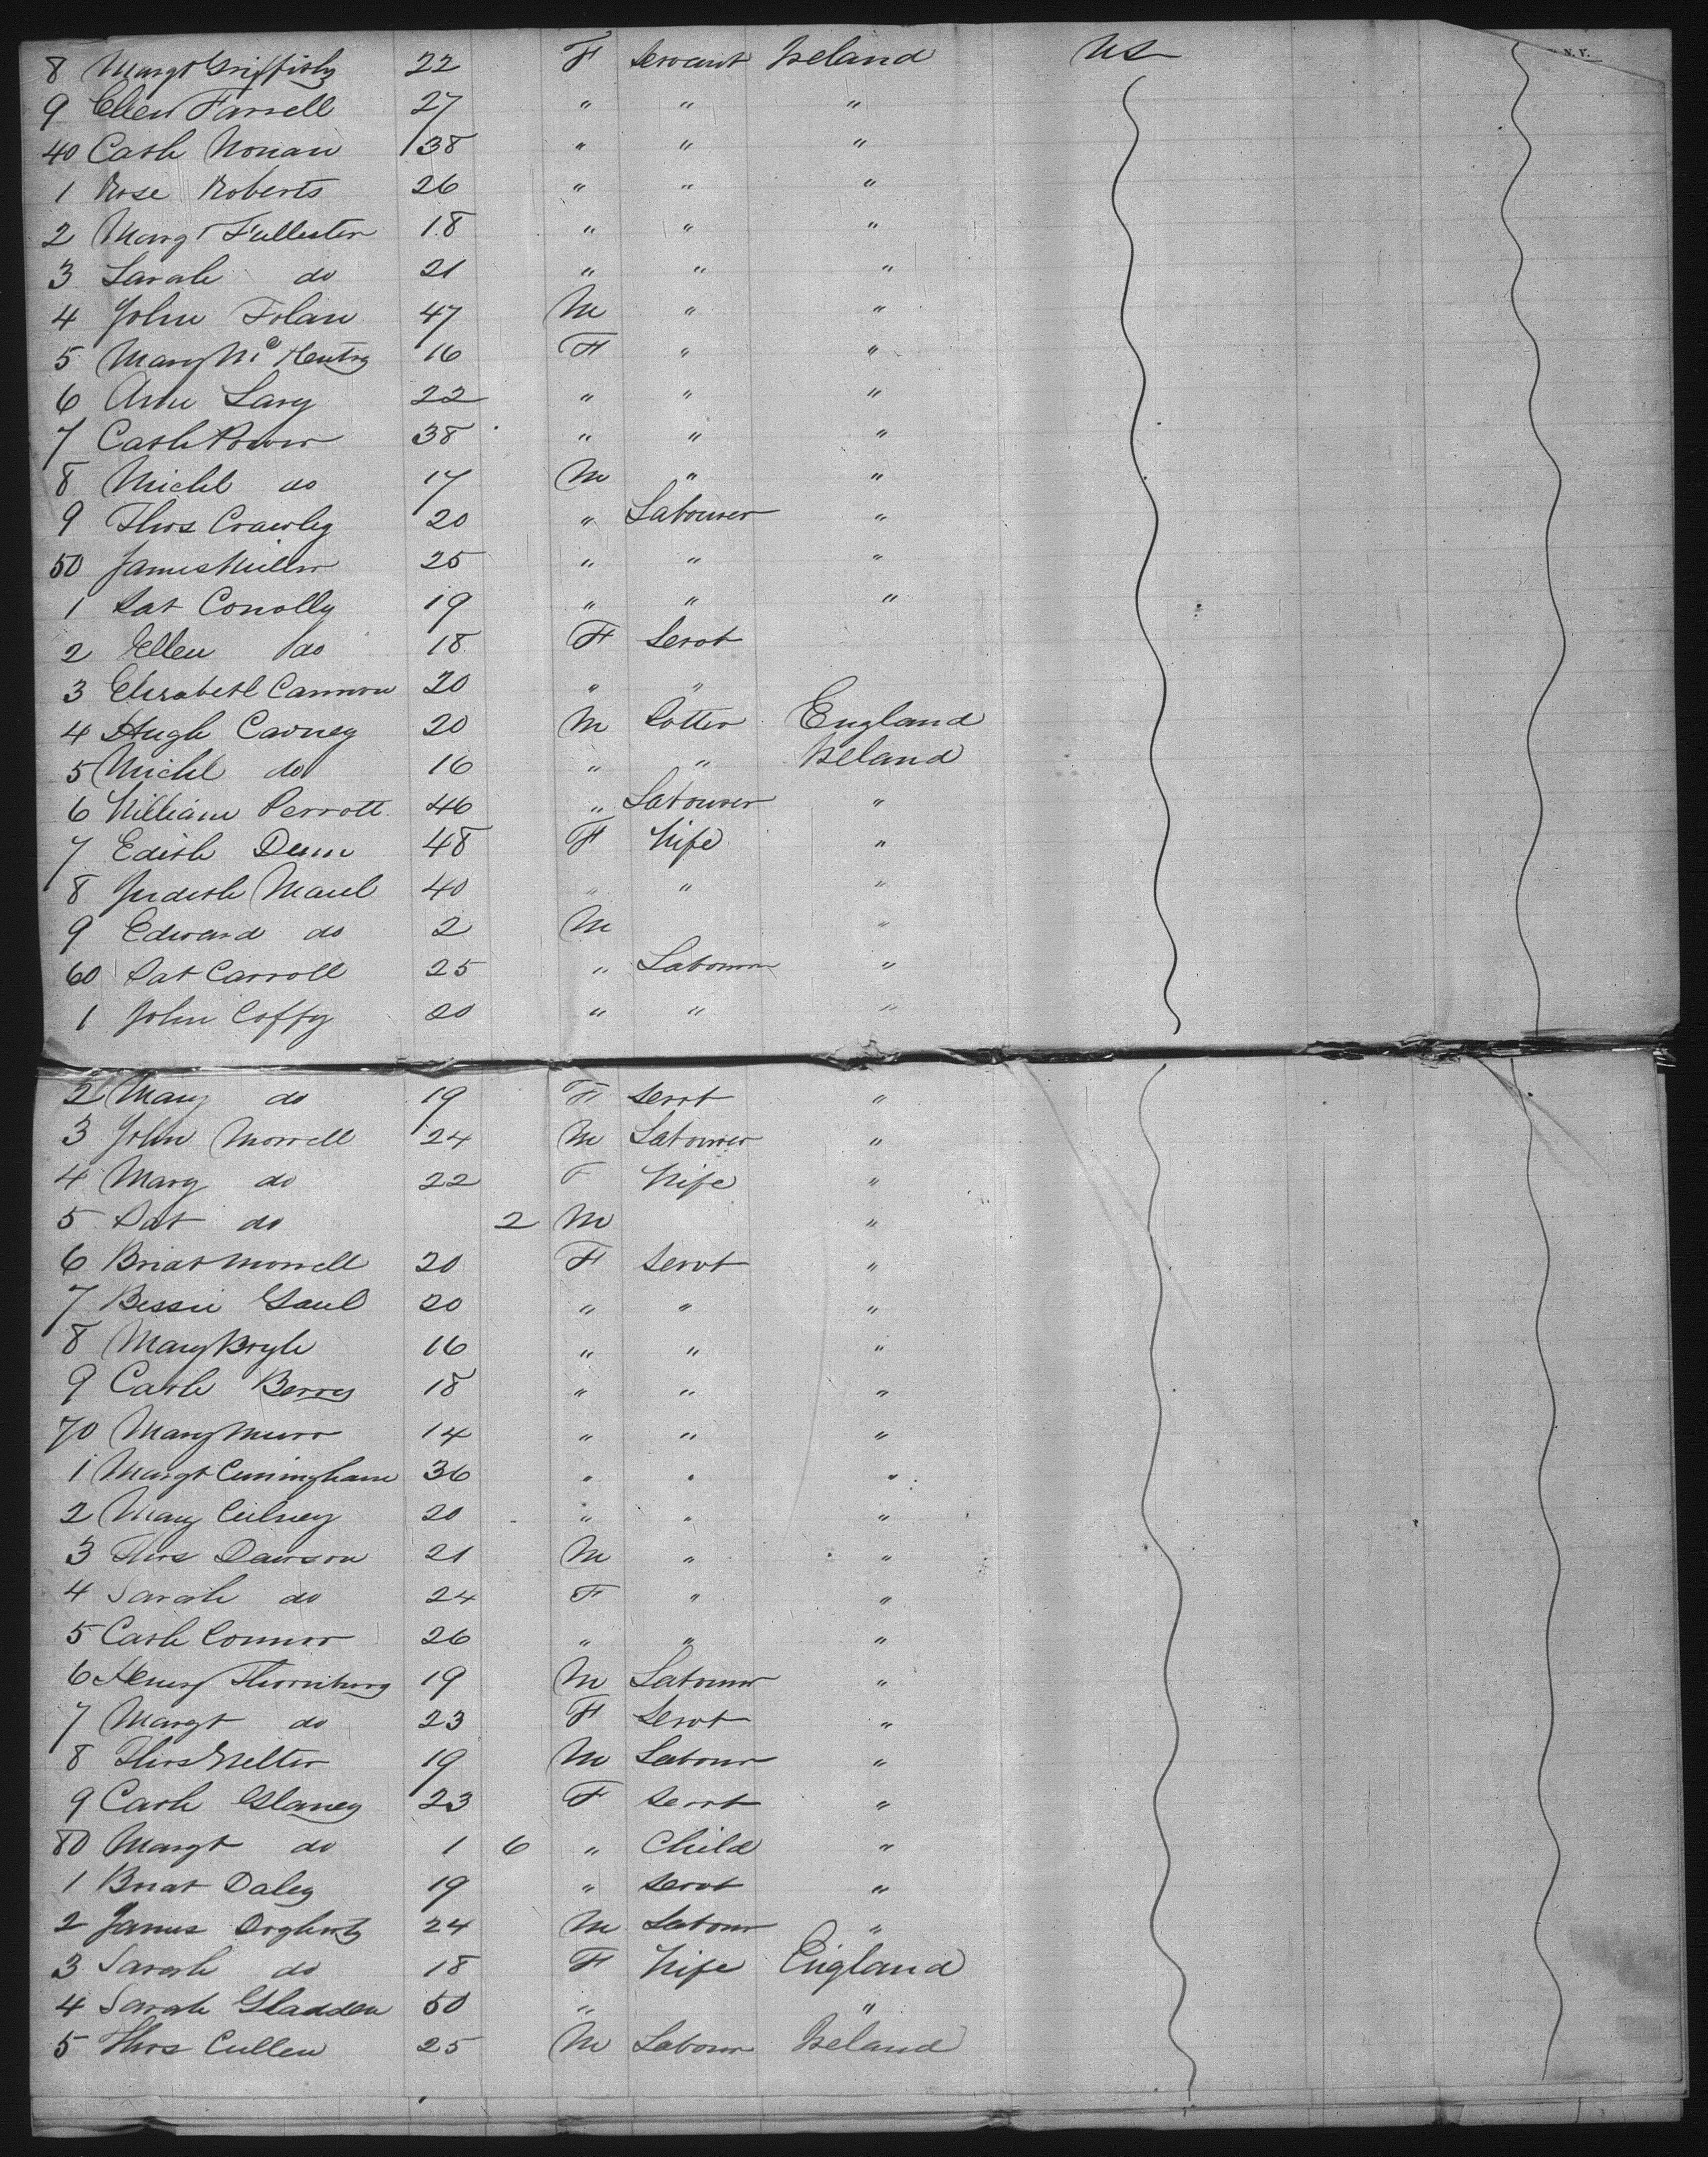 N.Y.
8 Margt Griffiths 22 F Servant Ireland US
9 Ellen Farrell 27 " " "
40 Cath Nonan 38 " " "
1 Rose Roberts 26 " " "
2 Margt Fullerton 18 " " "
3 Sarah do 21 " " "
4 John Folan 47 M " "
5 Mary McHentry 16 F " "
6 Ann Lary 22 " " "
7 Cath Power 38 " " "
8 Michl do 17 M " "
9 Thos Crawley 20 " Labourer "
50 James Miller 25 " " "
1 Pat Conolly 19 " " "
2 Ellen do 18 F Servt
3 Elizabeth Cannon 20 " "
4 Hugh Carney 20 M Potter England
5 Michl do 16 " " Ireland
6 William Perrott 46 " Labourer "
7 Edith Dunn 48 F Wife "
8 Judith 40 " " "
9 Edward do 2 M "
60 Pat Carroll 25 " Labourer "
1 John Coffy 20 " " "
2 Mary do 19 F Servt "
3 John Morrell 24 M Labourer "
4 Mary do 22 F Wife "
5 Pat do 2 M "
6 Bridt Morrell 20 F Servt "
7 Bessie Gaul 20 " " "
8 Mary Boyle 16 " " "
9 Cath Berry 18 " " "
70 Mary Murr 14 " " "
1 Margt Cuningham 36 " " "
2 Mary Culney 20 " " "
3 Thos Dawson 21 M " "
4 Sarah do 24 F " "
5 Cath Connor 26 " " "
6 Henry Thornburg 19 M Labourer "
7 Margt do 23 F Servt "
8 Thos 19 M Labour "
9 Cath Glaney 23 F Servt "
80 Margt do 1 6 " Child "
1 Bridt Daley 19 " Servt "
2 James Dogherty 24 M Labour "
3 Sarah do 18 F Wife England
4 Sarah Gladden 50 " "
5 Thos Cullen 25 M Labour Ireland